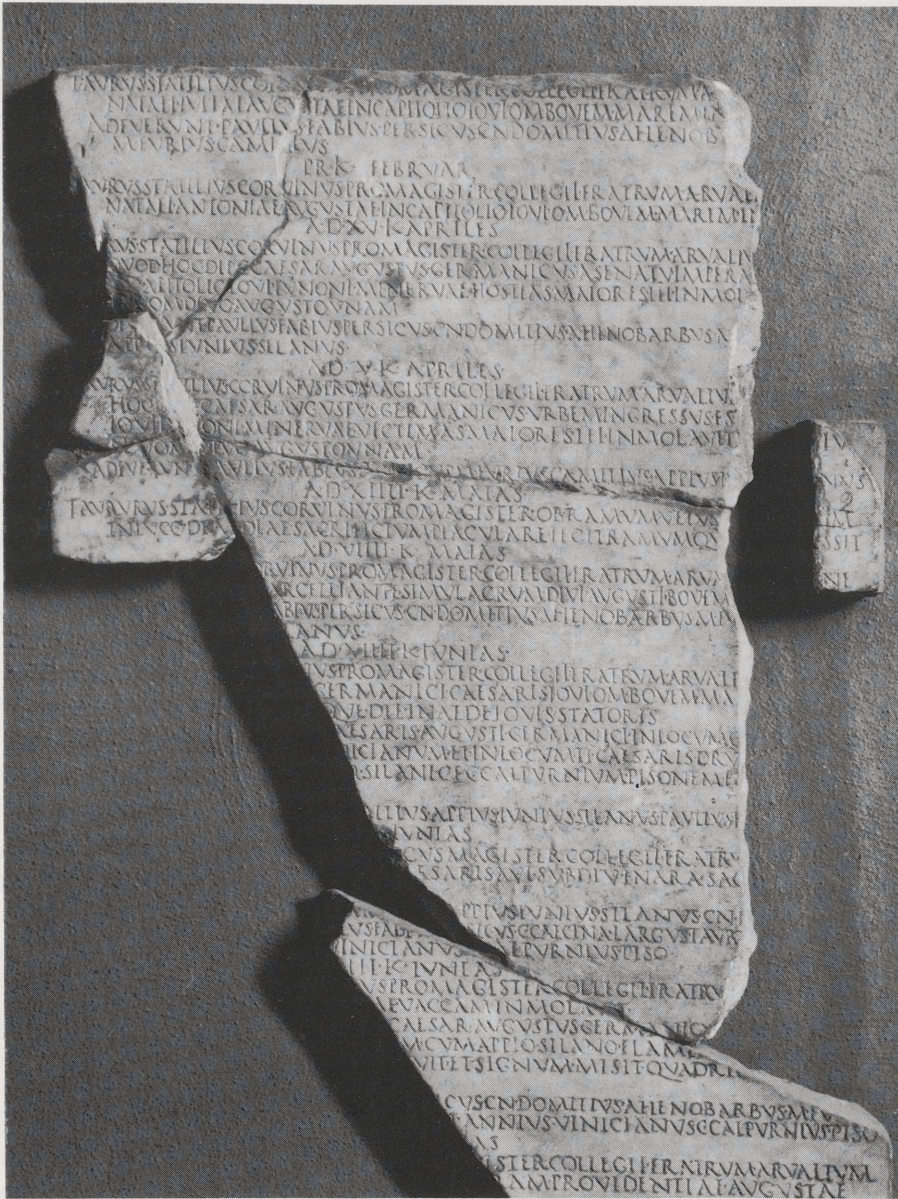 TAURUS STATILIUS PROMAGISTER COLLEGII FRATRUM
NATALI IULIAE AUGUSTAE IN CAPITOLIO IOVI O M BOVEM MAREM
ADFUERUNT PAULLUS FABIUS PERSICUS CN DOMITIUS AHENOB
M FURIUS CAMILLUS
PR K FEBRUAR
AURUS STATILIUS CORVINUS PROMAGISTER COLLEGII FRATRUM ARVAL
NATALI ANTONIAE AUGUSTAE IN CAPITOLIO IOVI O M BOVEM MAREM
A D XV K APRILES
RUS STATILIUS CORVINUS PROMAGISTER COLLEGII FRATRUM ARVALIU
QUOD HOC DIE C CAESAR AUGUSTUS GERMANICUS A SENATU IMPERA
CAPITOLIO IOVI IUNONI MINERVAE HOSTIAS MAIORES III INMOL
AUGUSTO UNAM
PAULLUS FABIUS PERSICUS CN DOMITIUS AHENOBARBUS
IUNIUS SILANUS
A D V K APRILES
AURUS STATILIUS CORVINUS PROMAGISTER COLLEGII FRATRUM ARVALIU
HOC CAESAR AUGUSTUS GERMANICUS URBEM INGRESSUS ES
IOVI MINERVAE VICTIMAS MAIORES III INMOLAVIT
AUGUSTO UNAM
PAULLUS FABIUS FURIUS CAMILLUS APPIUS
A D XIIII K MAIAS
TAURUS STA IUS CORVINUS PROMAGISTER OB RAMUM VETUS
SACRIFICIUM PIACULARE FECIT RAMUM Q
A D VIIII K MAIAS
RVINUS PROMAGISTER COLLEGII FRATRUM ARVA
ARCELLI ANTE SIMULACRUM DIVI AUGUSTI BOVEM
ABIUS PERSICUS CN DOMITIUS AHENOBARBUS M
ANUS
A D VIIII K IUNIAS
IUS PROMAGISTER COLLEGII FRATRUM ARVALI
GERMANICI CAESARIS IOVI O M BOVEM MA
QUE DIE IN AEDE IOVIS STATORIS
AESARIS AUGUSTI GERMANICI IN LOCUM
ICIANUM ET IN LOCUM TI CAESARIS DR
SILANI C F C CALPURNIUM PISONEM
LLIUS APPIUS IUNIUS SILANUS PAULLUS
IUNIAS
CUS MAGISTER COLLEGII FRATRU
SARIS AVI SUB DIVO IN ARA SAC
PPIUS IUNIUS SILANUS CN
US FAB ICUS C CAECINA LARGUS TAUR
INICIANUS ALPURNIUS PISO
IIII K IUNIAS
US PROMAGISTER COLLEGII FRATRU
VACCAM INMOLA
CAESAR AUGUSTUS GERMANIC
M CUM APPIO SILANO FLAM
ET SIGNUM MISIT QUADRI
CUS CN DOMITIUS AHENOBARBUS M FU
ANNIUS VINICIANUS C CALPURNIUS PISO
AS
ISTER COLLEGII FRATRUM ARVALIUM
AM PROVIDENTIAE AUGUSTAE
IU
NIUS
2
SSIT
NE